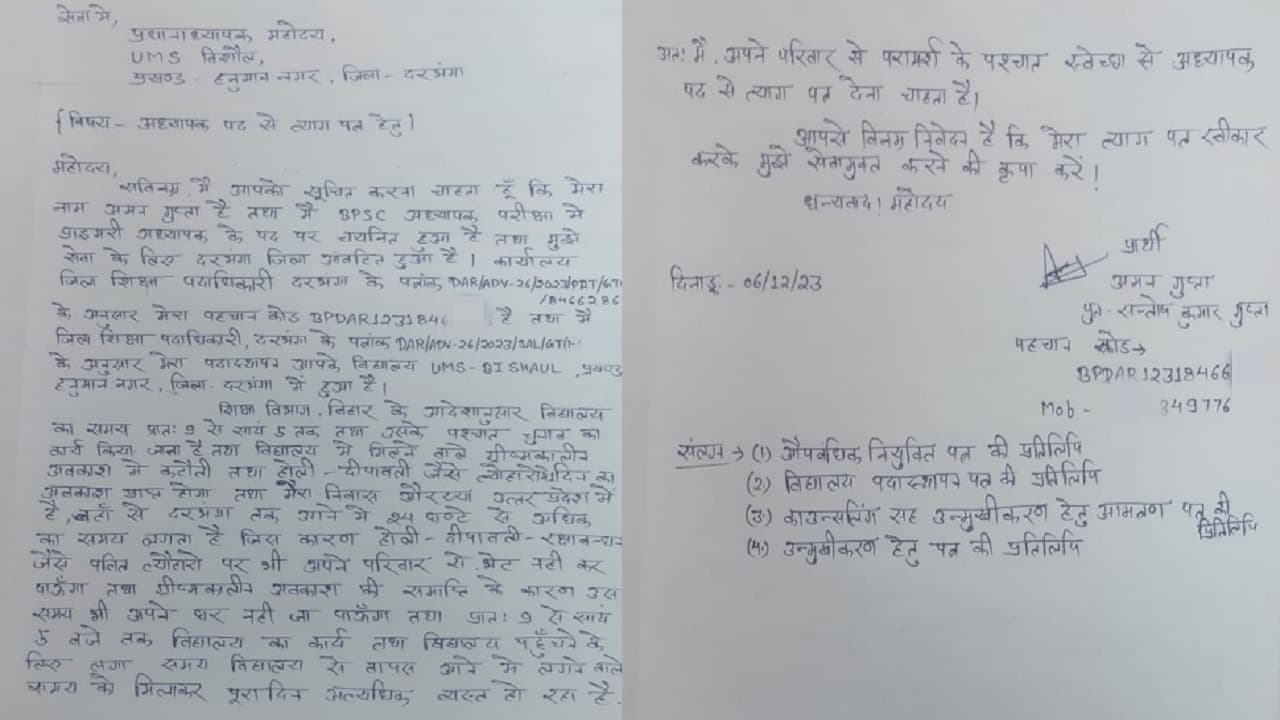 सेवा मे,
प्रधानाध्यापक महोदय,
UMS बिशौल,
प्रखण्ड - हनुमान नगर, जिला - दरभंगा
{ विषय - अध्यापक पद से त्याग पत्र हेतु }
महोदय,
सविनम्र, मै आपको सूचित करना चाहता हूँ कि मेरा
नाम अमन गुप्ता है तथा मै BPSC अध्यापक परीक्षा मे
प्राइमरी अध्यापक के पद पर चयनित हुआ है तथा मुझे
सेवा के लिए दरभंगा जिला आवंटित हुआ है। कार्यालय
जिला शिक्षा पदाधिकारी दरभंगा के पत्रांक DAR/ADV-26/2023/PRT/GT/
/8466286
के अनुसार मेरा पहचान कोड BPDAR1231846 है तथा मै
जिला शिक्षा पदाधिकारी, दरभंगा के पत्रांक DAR/ADV-26/2023/SAL/GT/1-
के अनुसार मेरा पदास्थापन आपके विद्यालय UMS-BISHAUL, प्रखण्ड
हनुमान नगर, जिला- दरभंगा में हुआ है।
शिक्षा विभाग, बिहार के आदेशानुसार विद्यालय
का समय प्रातः 9 से सायं 5 तक तथा उसके पश्चात चुनाव का
कार्य किया जाना है तथा विद्यालय मे मिलने वाले ग्रीष्मकालीन
अवकाश मे कटौती तथा होली - दीपावली जैसे त्योहारो मे दिन का
अवकाश प्राप्त होगा तथा मेरा निवास औरय्या उत्तर प्रदेश में
है, जहाँ से दरभंगा तक आने मे 24 घण्टे से अधिक
का समय लगता है जिस कारण होली - दीपावली - रक्षाबन्धन
जैसे पवित्र त्यौहारो पर भी अपने परिवार से भेट नही कर
पाऊँगा तथा ग्रीष्मकालीन अवकाश की समाप्ति के कारण उस
समय भी अपने घर नही जा पाऊँगा तथा प्रातः 9 से सायं
5 बजे तक विद्यालय का कार्य तथा विद्यालय पहुँचने के
लिए लगा समय विद्यालय से वापस आने मे लगने वाले
समय को मिलाकर पूरा दिन अत्यधिक व्यस्त हो रहा है.
अतः मै, अपने परिवार से परामर्श के पश्चात स्वेच्छा से अध्यापक
पद से त्याग पत्र देना चाहता है।
आपसे विनम्र निवेदन है कि मेरा त्याग पत्र स्वीकार
करके मुझे सेवामुक्त करने की कृपा करें!
धन्यवाद! महोदय
प्रार्थी
दिनाङ्क - 06/12/23
अमन गुप्ता
पुत्र - सन्तोष कुमार गुप्ता
पहचान कोड→
BPDAR12318466
Mob - 849776
संलग्न → (1) औपबंधिक नियुक्ति पत्र की प्रतिलिपि
(2) विद्यालय पदास्थापन पत्र की प्रतिलिपि
(3) काउन्सलिंग सह उन्मुखीकरण हेतु आमंत्रण पत्र की
प्रतिलिपि
(4) उन्मुखीकरण हेतु पत्र की प्रतिलिपि